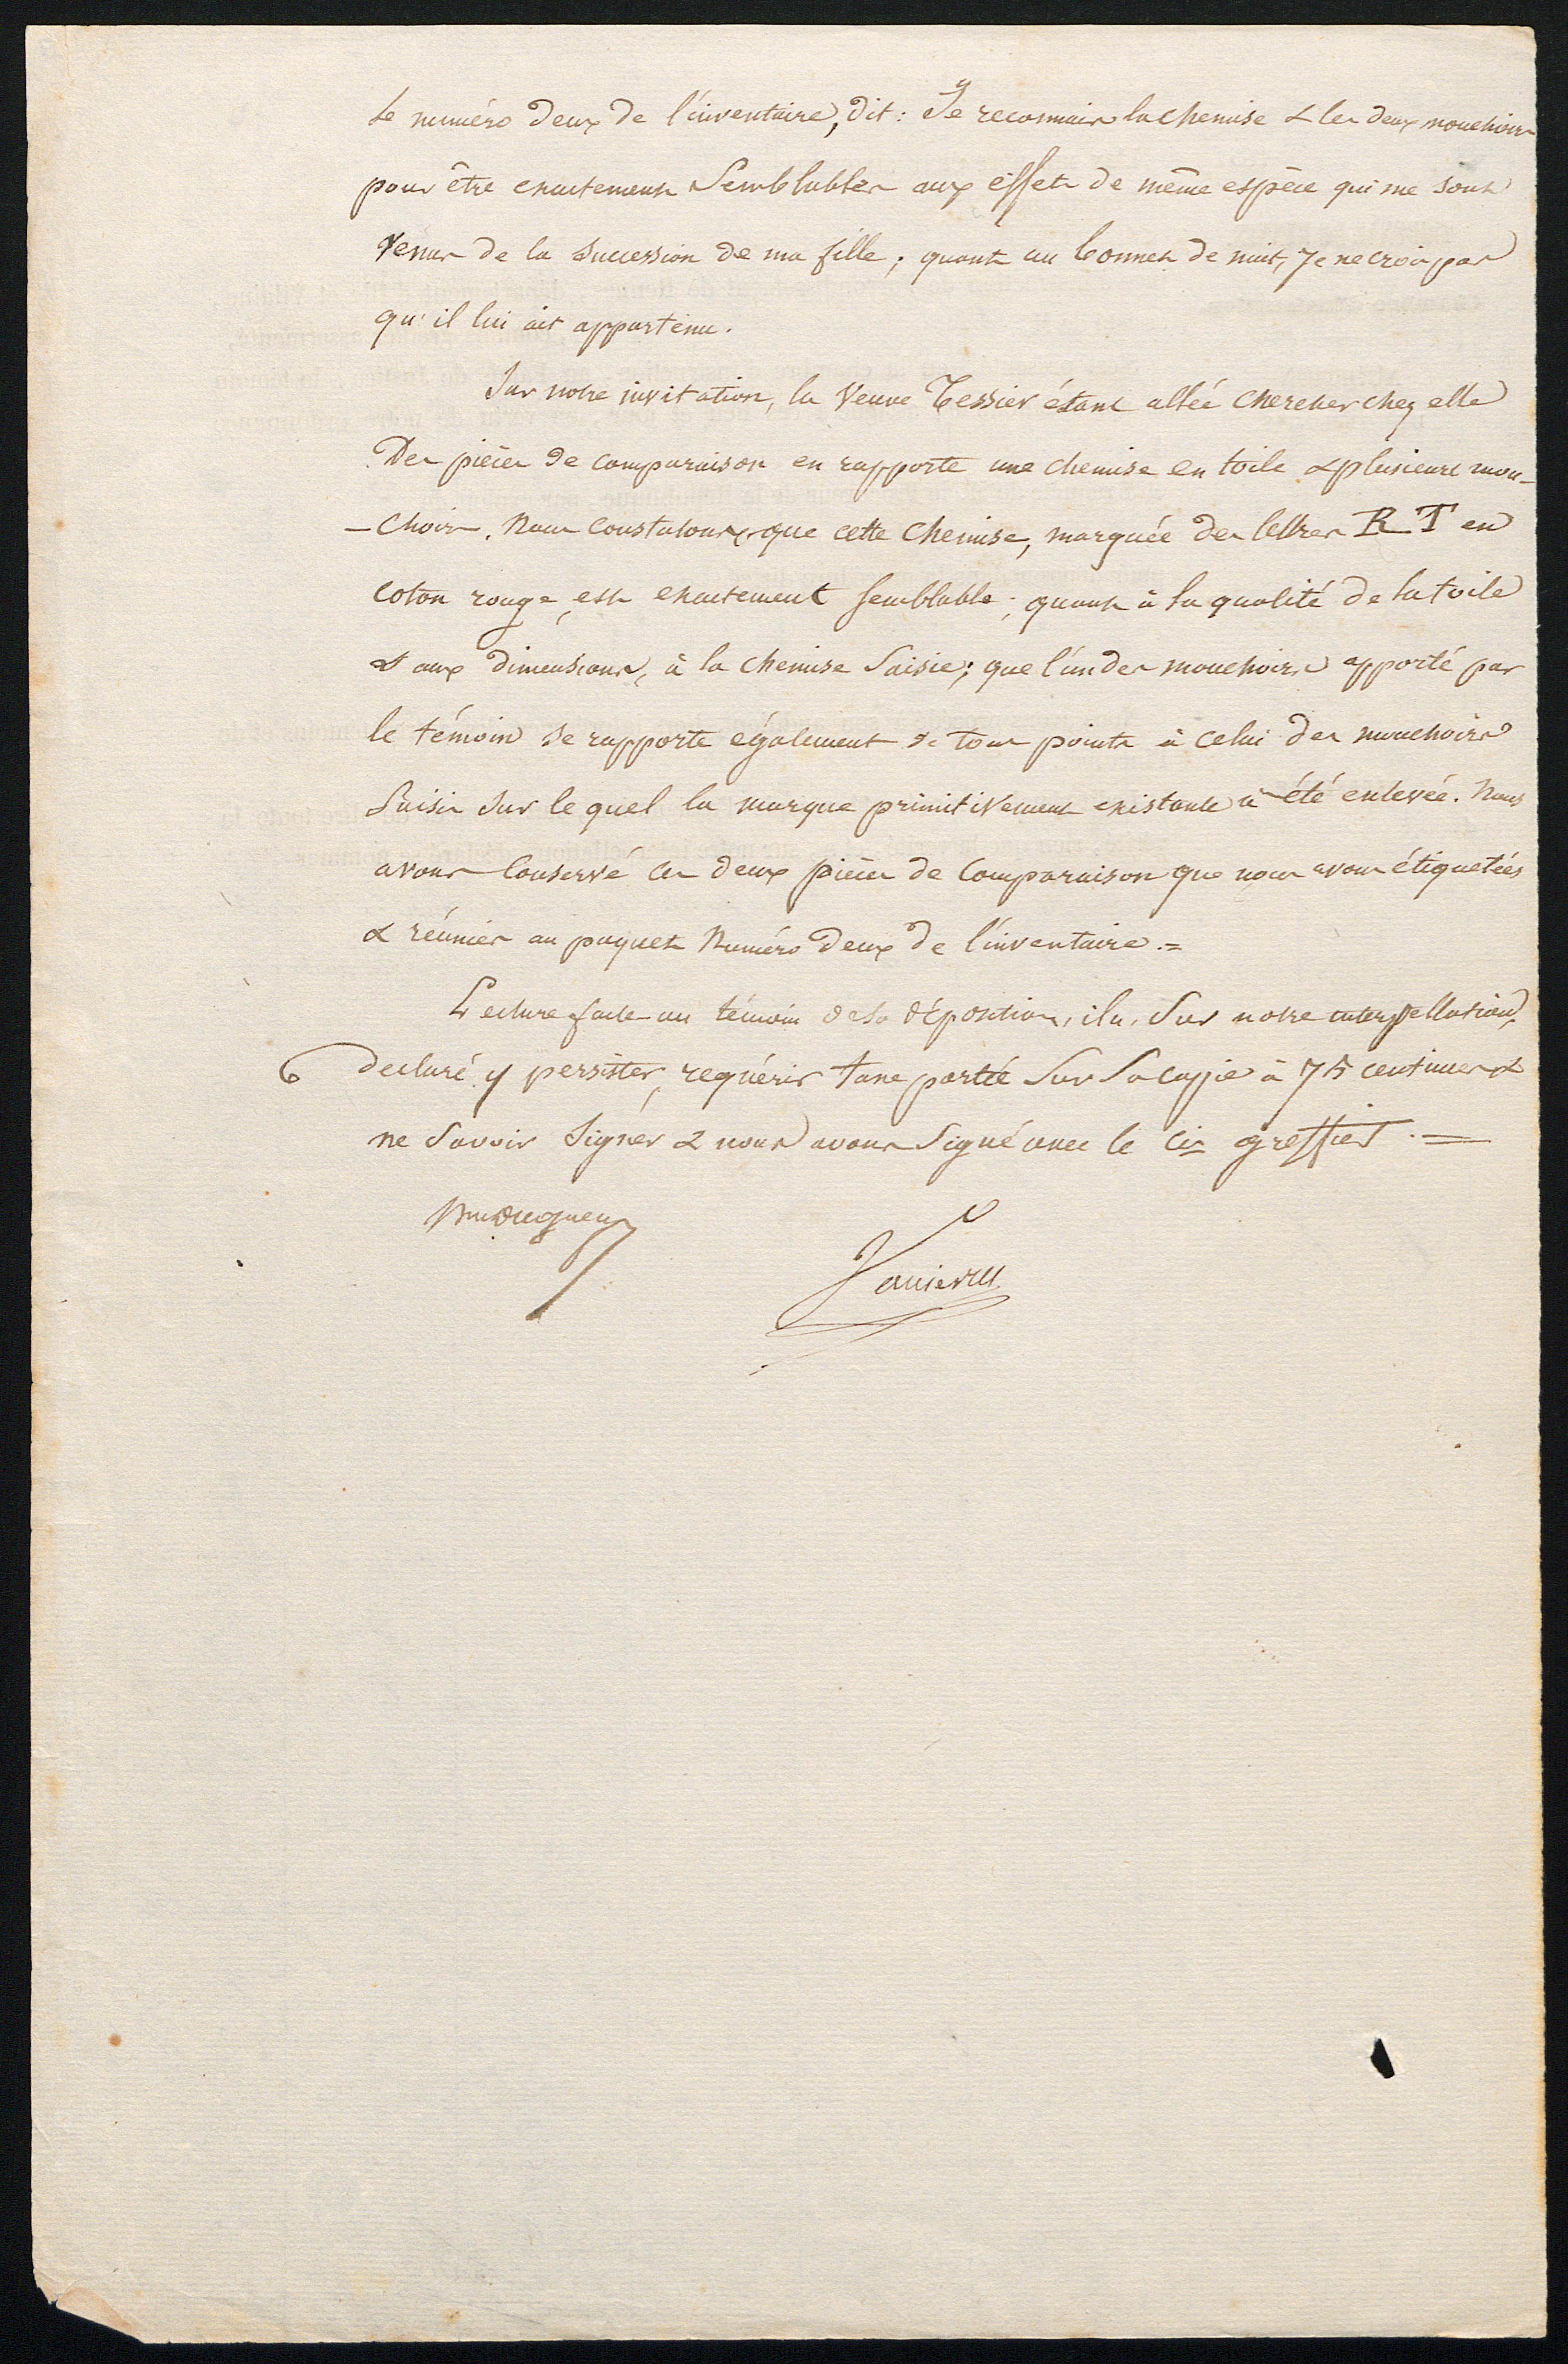 le numéro deux de l'inventaire, dit : Je reconnais la chemise & les deux mouchoirs
pour être exactement semblables aux effets de même espèce qui me sont
venus de la succession de ma fille ; quant au bonnet de nuit, Je ne crois pas
qu'il lui ait appartenu.
Sur notre invitation, la Veuve Tessier étant allée chercher chez elle
Des pièces de comparaison en rapporte une chemise en toile & plusieurs mou-
-choirs. Nous constatons que cette chemise, marquée des lettres R T en
coton rouge, est exactement semblable, quant à la qualité de la toile
& aux dimensions, à la chemise saisie ; que l'un des mouchoirs apporté par
le témoin se rapporte également de tous points à celui des mouchoirs
saisis sur le quel la marque primitivement existante a été enlevée. Nous
avons conservé ces deux pièces de comparaison que nous avons étiquetées
& réunies au paquet Numéro deux de l'inventaire.=
Lecture faite au témoin de sa déposition, il a, sur notre interpellation,
6 déclaré y persister, requérir taxe portée sur sa copie à 75 centimes &
ne savoir signer & nous avons signé avec le cis greffier.=
Janierre